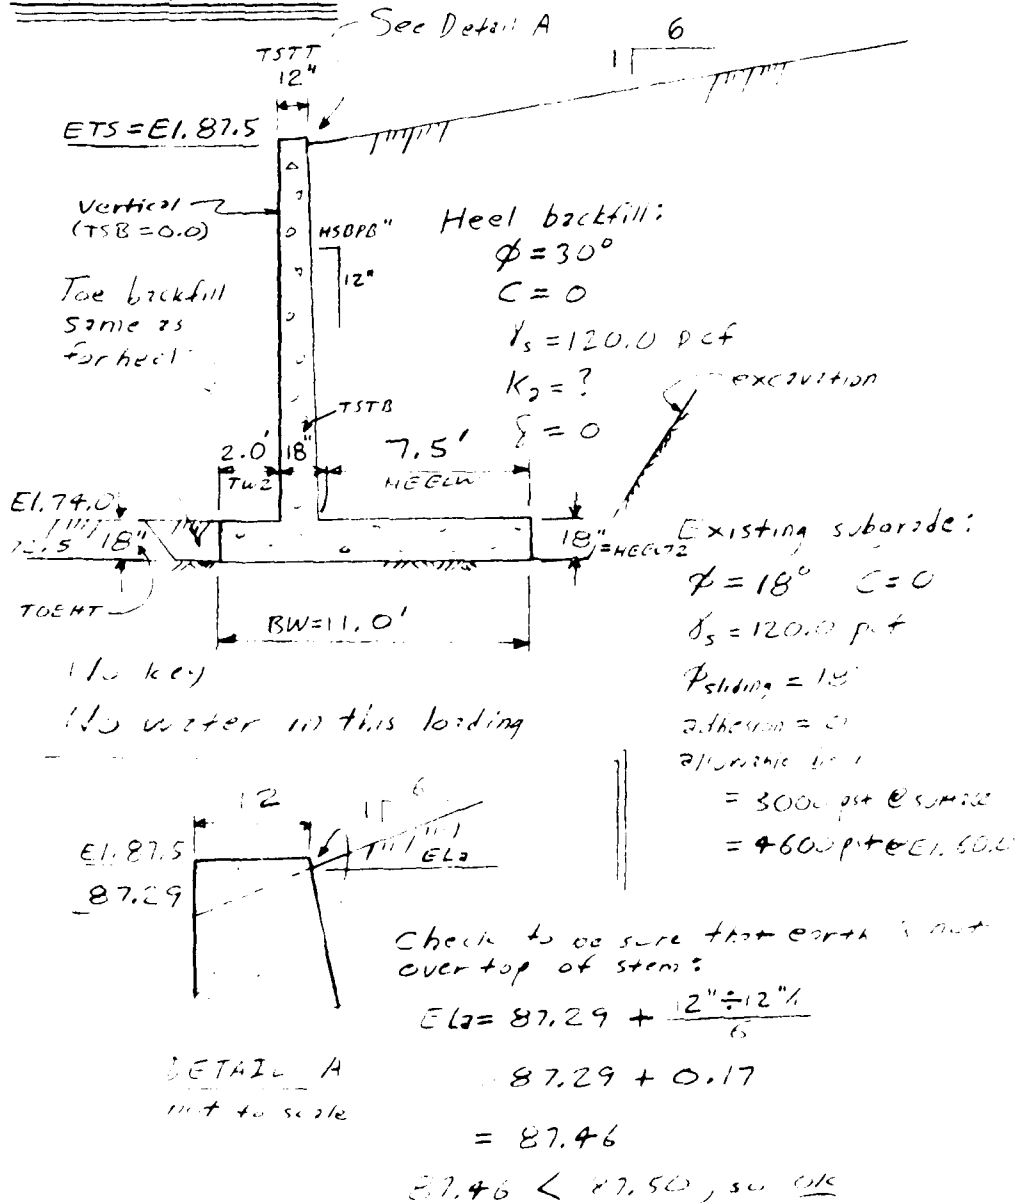 See Detail A
TSTT
12"
6
1
ETS = El. 87.5
Vertical
(TSB = 0.0)
HSBPB"
12"
Toe backfill
same as
for heel
Heel backfill:
φ = 30°
C = 0
γs = 120.0 pcf
Ka = ?
δ = 0
excavation
TSTB
2.0'
18"
7.5'
TW2
HEELW
El. 74.0
18"
TOEHT
18"
=HEELT2
BW = 11.0'
Existing subgrade:
φ = 18° C = 0
γs = 120.0 pcf
φsliding = 18
adhesion = 0
allowable
= 3000 psf @ surface
= 4600 psf @ El. 60.0
No key
No water in this loading
12
1
6
El. 87.5
ELa
87.29
DETAIL A
not to scale
Check to be sure that earth is not
over top of stem:
ELa = 87.29 + 12" ÷ 12"/ 6
87.29 + 0.17
= 87.46
87.46 < 87.50, so ok